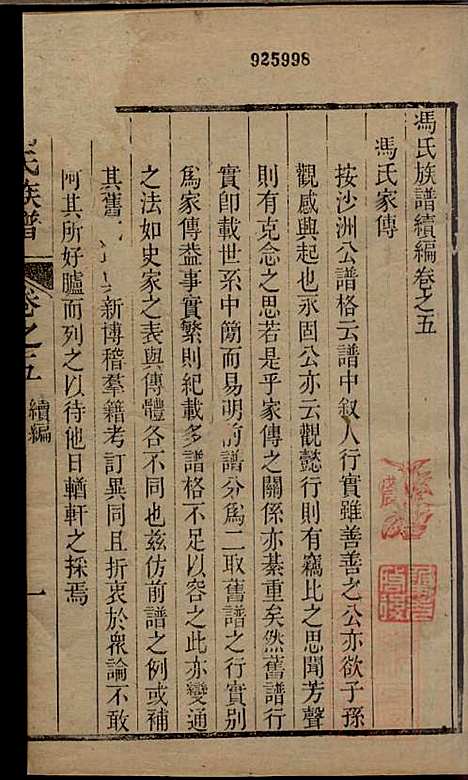 925998
馮氏族譜續編卷之五
馮氏家傳
按沙洲公譜格云譜中叙人行實雖善善之公亦欲子孫
觀感興起也永固公亦云觀懿行則有竊比之思聞芳聲
則有克念之思若是乎家傳之關係亦綦重矣然舊譜行
實即載世系中簡而易明前譜分爲二取舊譜之行實別
爲家傳葢事實繁則紀載多譜格不足以容之此亦變通
之法如史家之表與傳體各不同也兹仿前譜之例或補
其舊新博稽羣籍考訂異同且折衷於衆論不敢
阿其所好臚而列之以待他日輶軒之採焉
氏族譜
卷之五
續編
一